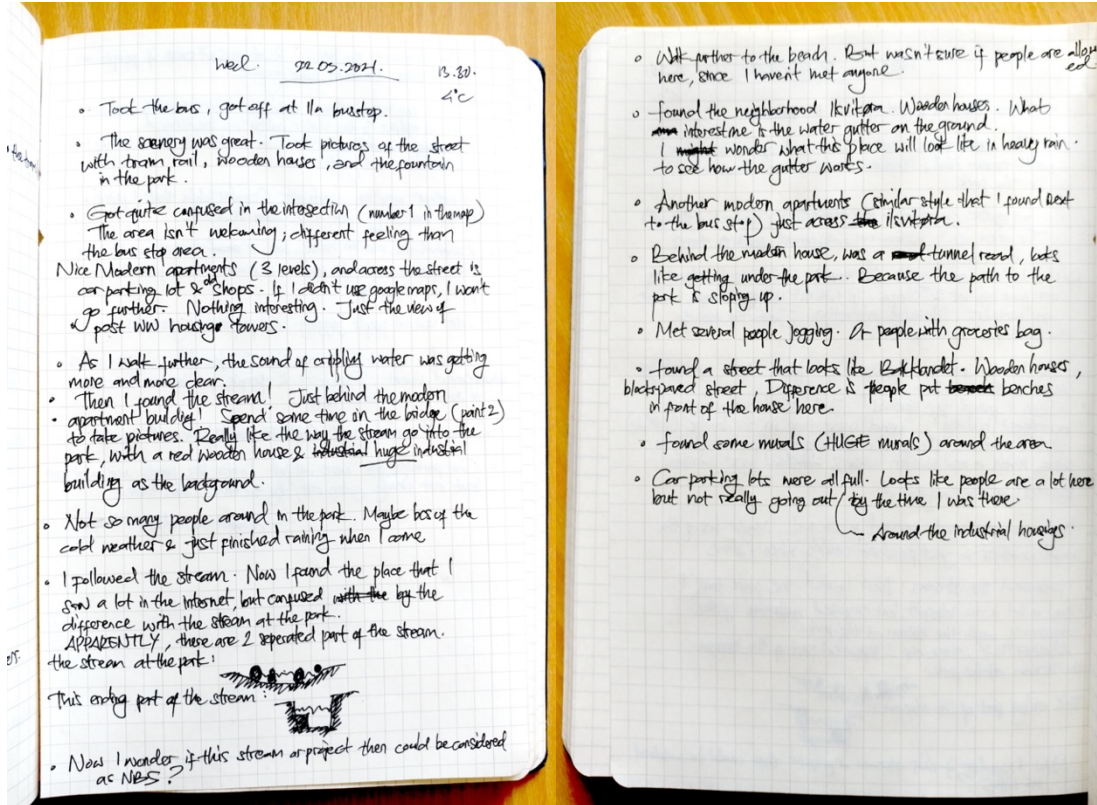 Wed. 22.03.2021. 13.30.
4°C
• Took the bus, got off at Ila busstop.
The scenery was great. Took pictures of the street
with tram rail, wooden houses, and the fountain
in the park.
• Got quite confused in the intersection (number 1 in the map)
The area isn't welcoming; different feeling than
the bus stop area.
Nice Modern apartments (3 levels), and across the street is
car parking lot & old shops. If I didn't use google maps, I won't
go further. Nothing interesting. Just the view of
post WW housing towers.
• As I walk further, the sound of crippling water was getting
more and more clear.
• Then I found the stream! Just behind the modern
• apartment building! Spend some time in the bridge (point 2)
to take pictures. Really like the way the stream go into the
park, with a red wooden house & industrial huge industrial
building as the background.
• Not so many people around in the park. Maybe bcs of the
cold weather & just finished raining when I come
• I followed the stream. Now I found the place that I
saw a lot in the internet, but confused with the by the
difference with the stream at the park.
APPARENTLY, there are 2 seperated part of the stream.
the stream at the park:
This ending part of the stream:
• Now I wonder if this stream or project then could be considered
as NBS?
• Walk further to the beach. But wasn't sure if people are allowed
here, since I haven't met anyone.
• found the neighborhood Ilsvikøra. Wooden houses. What
interest me is the water gutter on the ground.
I might wonder what this place will look like in heavy rain.
to see how the gutter works.
• Another modern apartments (similar style that I found next
to the bus stop) just across the ilsvikøra.
• Behind the modern house, was a tunnel road, looks
like getting under the park. Because the path to the
park is sloping up.
• Met several people jogging. Or people with groceries bag.
• found a street that looks like Bakklandet. Wooden houses,
blocks paved street, Difference is people put bench benches
in front of the house here
• found some murals (HUGE murals) around the area
• Car parking lots were all full. Looks like people are a lot here
but not really going out by the time I was there.
Around the industrial housings.